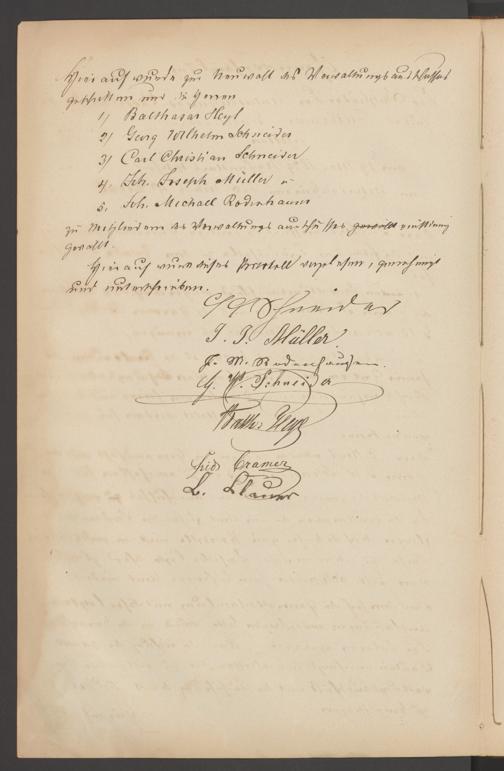 Hierauf wurde zur Neuwahl des Verwaltungsausschusses
geschritten und die Herren
1) Balthasar Heyl
2) Georg Wilhelm Schneider
3) Carl Christian Schneider
4. Joh. Joseph Müller
5. Joh. Michael Rodenhausen
zu Mitgliedern des Verwaltungsausschusses gewählt einstimmig
gewählt.
Hierauf wurde dieses Protocoll vorgelesen, genehmigt
und unterschrieben.
C C Schneider
J. J. Müller
J. M. Rodenhausen.
G. W. Schneider
Balth. Heyl
Cramer
L.